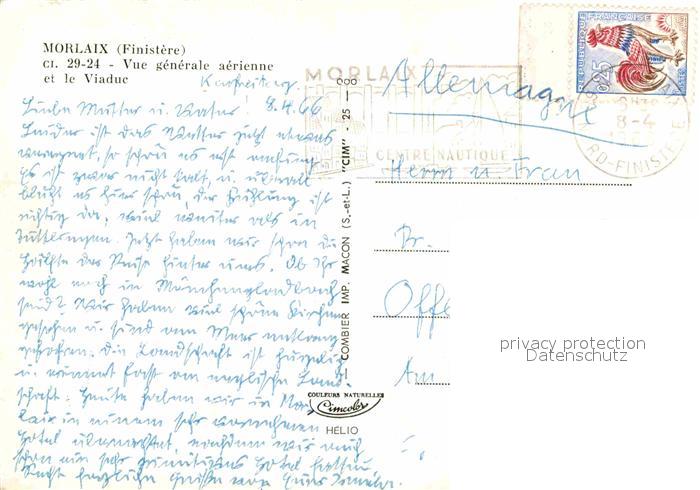 MORLAIX (Finistère)
CI. 29-24 - Vue générale aérienne
et le Viaduc
Karfreitag
8.4.66
Liebe Mutter u. Vater!
Leider ist das Wetter jetzt etwas
so schön es erst anfing.
Es ist zwar nicht kalt, u. überall
blüht es hier schön, der Frühling ist
richtig da, viel weiter als in
Tuttlingen. Jetzt haben wir schon die
Hälfte der Reise hinter uns. Ob Ihr
wohl noch in Mönchengladbach
seid? Wir haben viel schöne Kirchen
gesehen u. sind am Meer entlang
gefahren. Die Landschaft ist hügelig
u. erinnert fast an englische Land-
schaft. Heute haben wir in Mor-
laix in einem sehr vornehmen
Hotel übernachtet, nachdem wir auch
schon ein sehr primitives Hotel hatten.
Recht herzliche Grüße von Eurer
MORLAIX
CENTRE NAUTIQUE
REPUBLIQUE FRANÇAISE
0,25
8-4
RD-FINISTERE
Allemagne
Herrn u Frau
Dr.
Offe
Am
COMBIER IMP. MACON (S.-et-L.) "CIM" - 25 -
COULEURS NATURELLES
Cimcolor
HELIO
privacy protection
Datenschutz